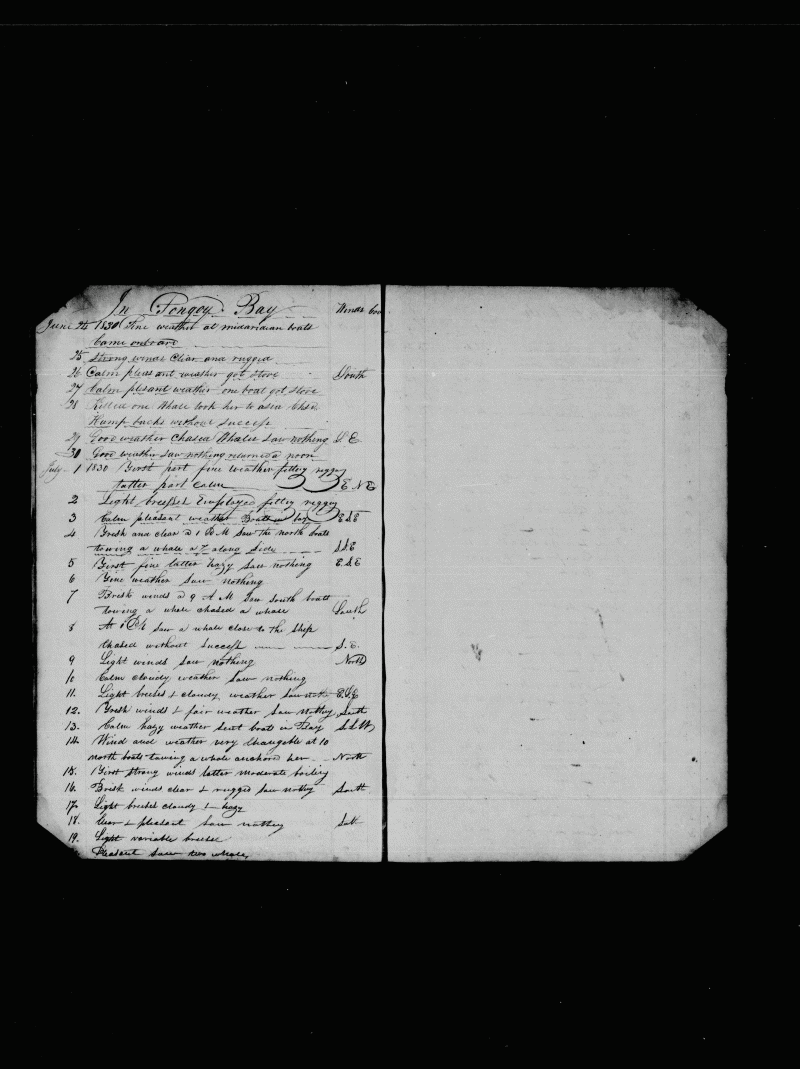 In Tongoy Bay Winds
June 24 1830 Fine weather at midaridian boats
Came onboard
25 Strong winds Clear and rugged
26 Calm pleasant weather got stove South
27 Calm plesant weather one boat got stove
28 Killed one Whale took her to
Hump backs without success
29 Good weather Chased Whales saw nothing S. E
30 Good weather saw nothing returned a noon
July 1 1830 First part fine weather
latter part Calm E N E
2 Light breeses Employed
3 Calm pleasant weather Boats in bay E S E
4 Fresh and clear a 1 P M saw the north boats
towing a whale a 7 along side S S E
5 First fine latter hazy saw nothing E. S. E
6 Fine weather saw nothing
7 Brisk winds a 9 A M saw south boats
towing a whale chased a whale South
8 At 1 PM saw a whale close to the ship
Chased without success S. E.
9 Light winds saw nothing North
10 Calm cloudy weather saw nothing
11. Light breeses & cloudy weather saw E. S. E
12. Fresh winds & fair weather saw nothing South
13. Calm hazy weather sent boats in Bay S. S. W
14. Wind and weather very changable at 10
north boats towing a whale anchord her North
15. First strong winds latter moderate boiling
16. Brisk winds clear & rugged saw nothing South
17. Light breeses cloudy & hazy
18. Clear & pleasant saw nothing
19. Light variable breeses
Pleasant saw two whales